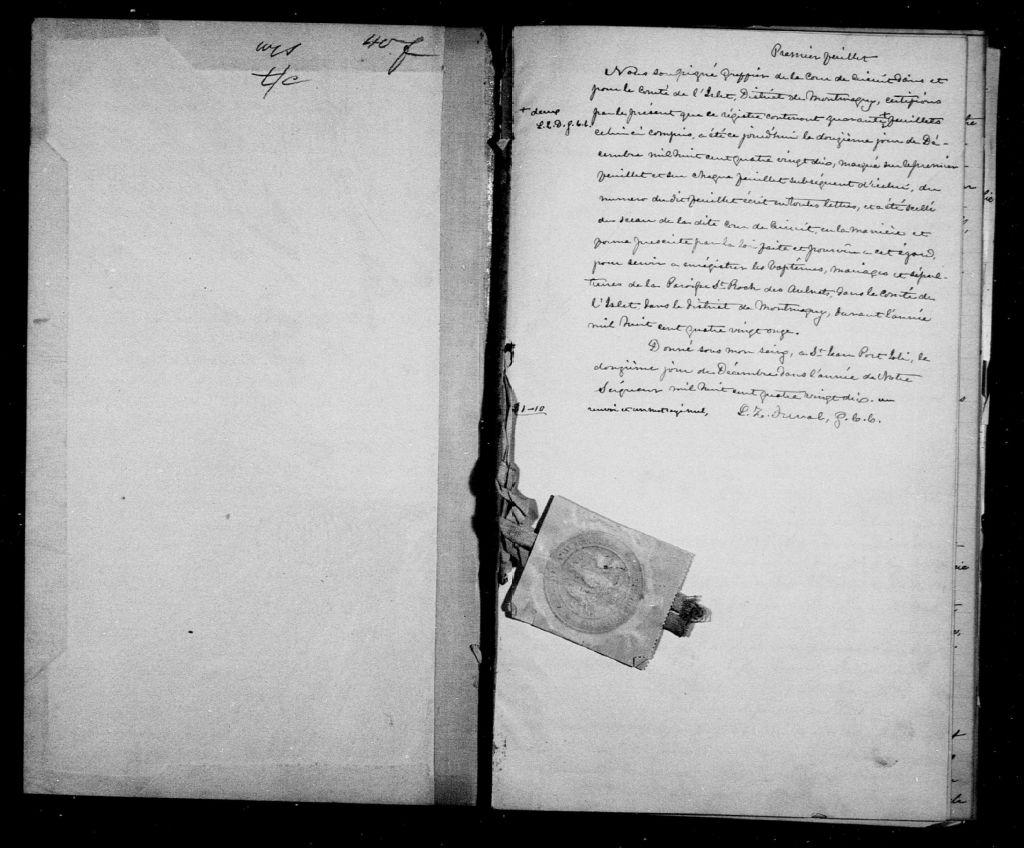 40 f
t/c
Premier feuillet
Nous soussigné greffier de la Cour de Circuit dans et
pour le Comté de l'Islet, District de Montmagny, certifions
par le présent que ce régistre contenant quarante + feuillets
+ deux
L.Z.D. g.c.c.
celui ci compris, a été ce jourd'hui le douzième jour de Dé-
cembre mil huit cent quatre vingt dix, marqué sur le premier
feuillet et sur chaque feuillet subséquent d'icelui, du
numero du dit feuillet écrit en toutes lettres, et a été scellé
du sceau de la dite Cour de Circuit, en la manière et
forme prescrite par la loi faite et pourvue a cet égard,
pour servir a enrégistrer les Baptêmes, mariages et sépul-
tures de la Paroisse St. Roch des Aulnets, dans le Comté de
l'Islet, dans le District de Montmagny, durant l'année
mil huit cent quatre vingt onze.
Donné sous mon seing, a St. Jean Port Joli, le
douzième jour de Décembre dans l'année de Notre
Seigneur mil huit cent quatre vingt dix. un
renvoi et un mot rayé nul,
L. Z. Duval, g.c.c.
1-10